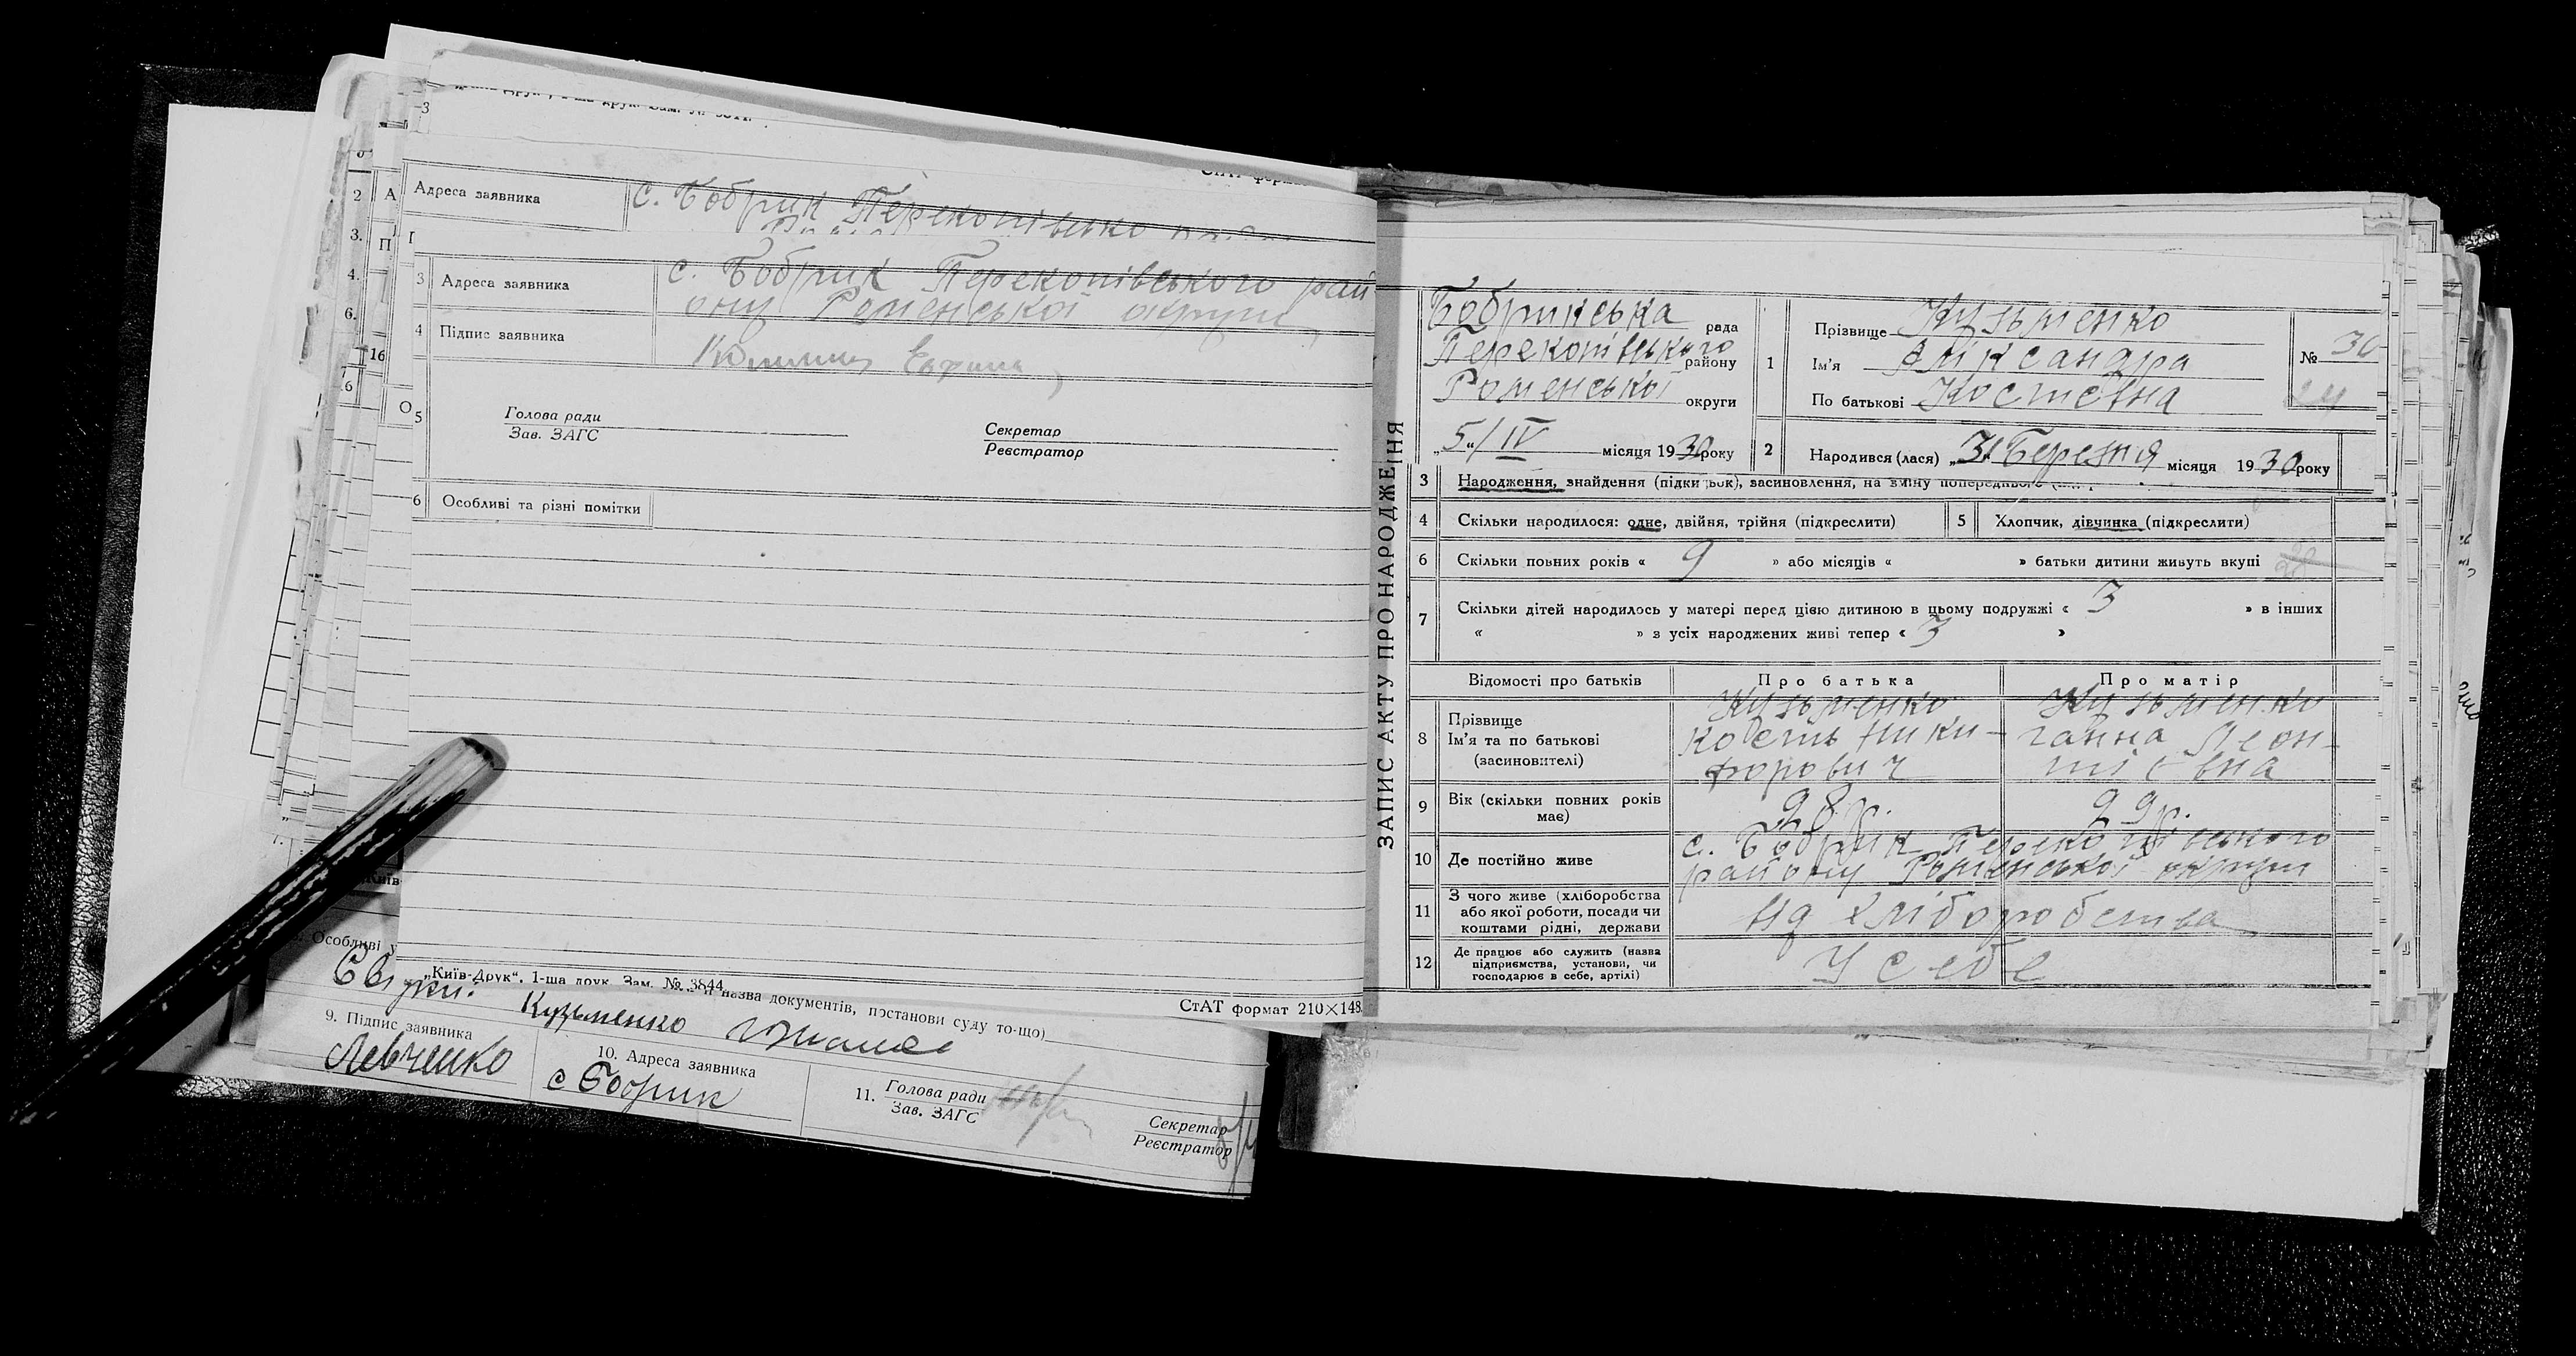 Адреса заявника с. Бобрик Перекопівсько
3 Адреса заявника с. Бобрик Перекопівського рай-
ону Роменської округи
4 Підпис заявника
5 Голова ради
Зав. ЗАГС
Секретар
Реєстратор
6 Особливі та різні помітки
„Київ-Друк“, 1-ша друк. Зам. № 3844
СтАТ формат 210×148
Особливі у
назва документів, постанови суду то-що)
Свідки: Кузьменко
9. Підпис заявника
Левченко
10. Адреса заявника
с Бобрик
11. Голова ради
Зав. ЗАГС
Секретар
Реєстратор
ЗАПИС АКТУ ПРО НАРОДЖЕННЯ
Бобрикська рада
Перекопівського району
Роменської округи
„5“/IV місяця 1930 року
1 Прізвище Кузьменко
Ім'я Аліксандра
По батькові Костєвна
№ 30
24
2 Народився (лася) „31“ Березня місяця 1930 року
3 Народження, знайдення (підкидьок), засиновлення, на зміну попереднього
4 Скільки народилося: одне, двійня, трійня (підкреслити)
5 Хлопчик, дівчинка (підкреслити)
6 Скільки повних років « 9 » або місяців « » батьки дитини живуть вкупі
7 Скільки дітей народилось у матері перед цією дитиною в цьому подружжі « 3 » в інших
« » з усіх народжених живі тепер « 3 »
Відомості про батьків Про батька Про матір
8 Прізвище Ім'я та по батькові (засиновителі)
Кузьменко Кость Ники-форович
Кузьменко Ганна Леон-тієвна
9 Вік (скільки повних років має) 28 р. 29 р.
10 Де постійно живе с. Бобрик Перекопівського
району Роменської округи
11 З чого живе (хліборобства
або якої роботи, посади чи
коштами рідні, держави
Ид хліборобства
12 Де працює або служить (назва
підприємства, установи, чи
господарює в себе, артілі)
У себе